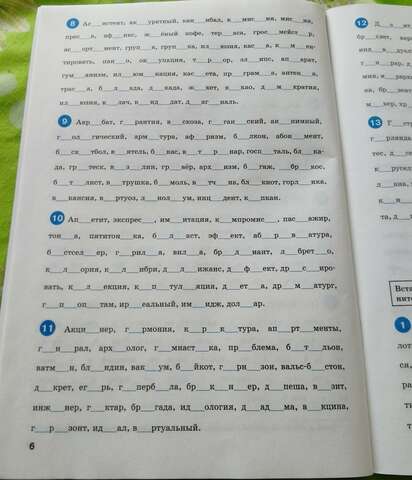 8 Ас__истент, ак__уратный, кан__ибал, к__мис__ия, мис__ия,
прес__а, аф__икс, ж__ёный кофе, тер__аса, грос__мейст__р,
ас__орт__мент, груп__а, груп__ка, ил__юзия, кас__а, к__м__н__
тировать, пан__о, ок__упация, т__р__ор, эл__ипс, ап__арат,
гум__анизм, ил__юм__нация, кас__ета, пр__грам__а, антен__а,
трас__а, б__л__ада, д__када, ж__кет, в__као, д__м__кратия,
ил__юзия, к__лач, к__нд__дат, д__аг__наль.
9 Акр__бат, г__рантия, а__скоза, г__ган__ский, ан__нимный,
г__ол__гический, арм__тура, аф__ризм, б__лкон, абон__мент,
б__ск__тбол, в__ятель, б__кас, в__т__р__нар, госп__таль, бл__ка-
да, гр__теск, в__з__лин, гр__вёр, арх__изм, б__гаж, __бр__кос,
б__т__лист, в__трушка, б__моль, в__тч__на, бл__кнот, горл__нка,
в__кансия, в__ртуоз, л__нол__ум, инц__дент, к__пкан.
10 Ап__етит, экспрес__, им__итация, к__мпромис__, пас__ажир,
тон__а, пятитон__ка, б__л__аст, эф__ект, аб__р__в__атура,
б__стсел__ер, г__рил__а, вил__а, бр__л__иант, л__брет__о,
к__л__ория, к__л__ибри, д__л__ижанс, д__ф__ект, др__с__иро-
вать, к__л__екция, к__п__тул__яция, д__ета, др__м__атург,
г__п__оп__там, ир__еальный, им__идж, дол__ар.
11 Акци__нер, г__рмония, к__р__к__тура, ап__рт__менты,
г__н__рал, арх__олог, г__мнаст__ка, пр__блема, б__т__льон,
ватм__н, бл__ндин, вак__ум, б__йкот, г__рн__зон, вальс-б__стон,
д__крет, ег__рь, г__перб__ла, бр__к__н__ер, д__пеша, в__зит,
инж__нер, г__ктар, бр__гада, ид__ология, д__ад__ма, в__кцина,
г__р__зонт, ид__ал, в__ртуальный.
6
12
13
1